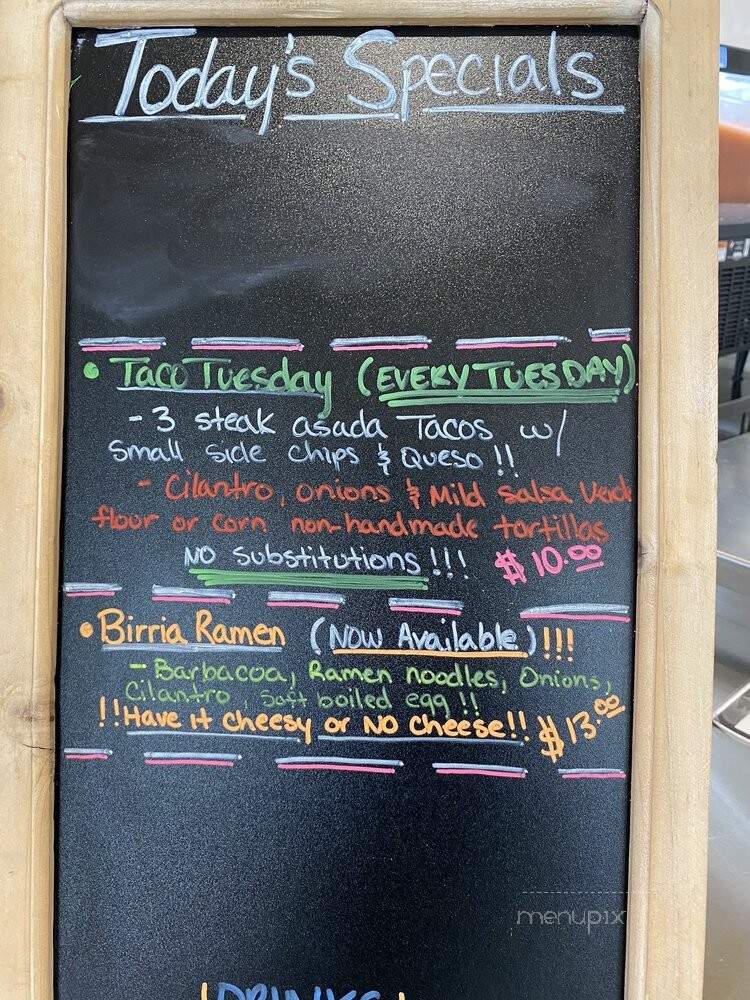 Today's Specials
• Taco Tuesday (EVERY TUESDAY)
- 3 steak asada Tacos w/
Small side chips & Queso !!
- Cilantro, onions & Mild salsa Verde
flour or corn non-handmade tortillas
NO Substitutions!!! $10.00
• Birria Ramen (Now Available)!!!
- Barbacoa, Ramen noodles, Onions,
Cilantro, soft boiled egg !!
!!Have it cheesy or NO cheese!! $13.00
menupix
!DRINKS!